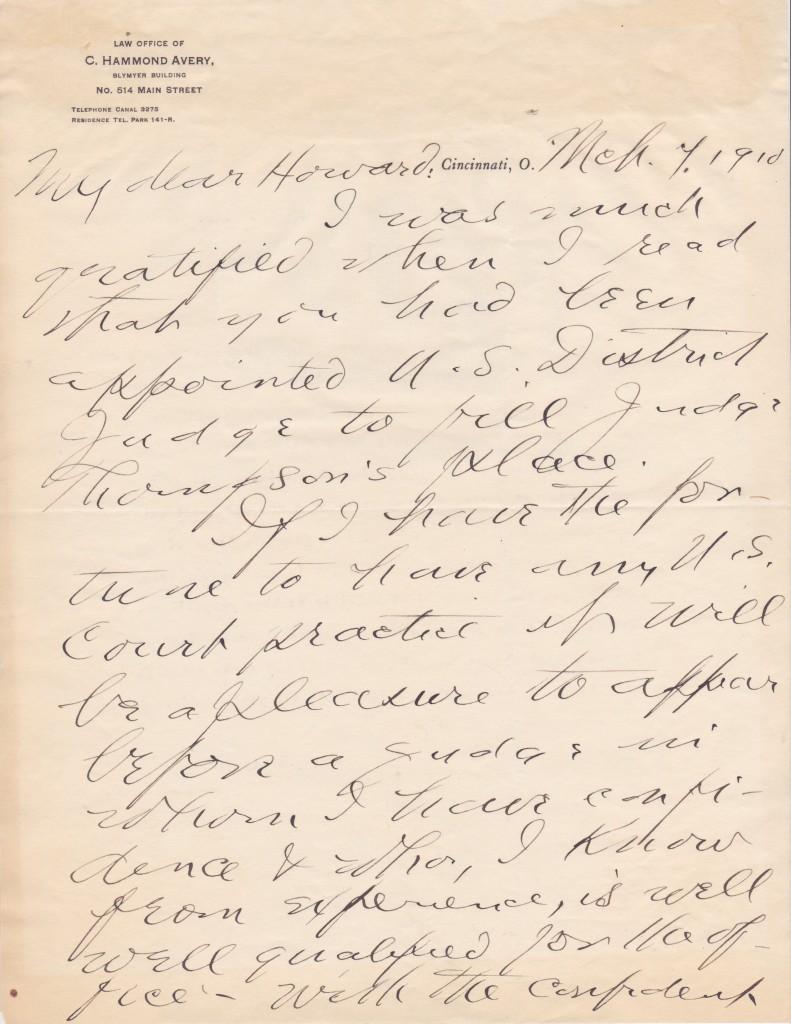 LAW OFFICE OF
C. HAMMOND AVERY,
BLYMYER BUILDING
No. 514 MAIN STREET
TELEPHONE CANAL 3275
RESIDENCE TEL. PARK 141-R.
Cincinnati, O. Mch. 7. 1910
My dear Howard:
I was much
gratified when I read
that you had been
appointed U.S. District
Judge to fill Judge
Thompson's place.
If I have the for-
tune to have any U.S.
Court practice it will
be a pleasure to appear
before a judge in
whom I have confi-
dence & who, I know
from experience, is well
well qualified for the of-
fice - With the confident